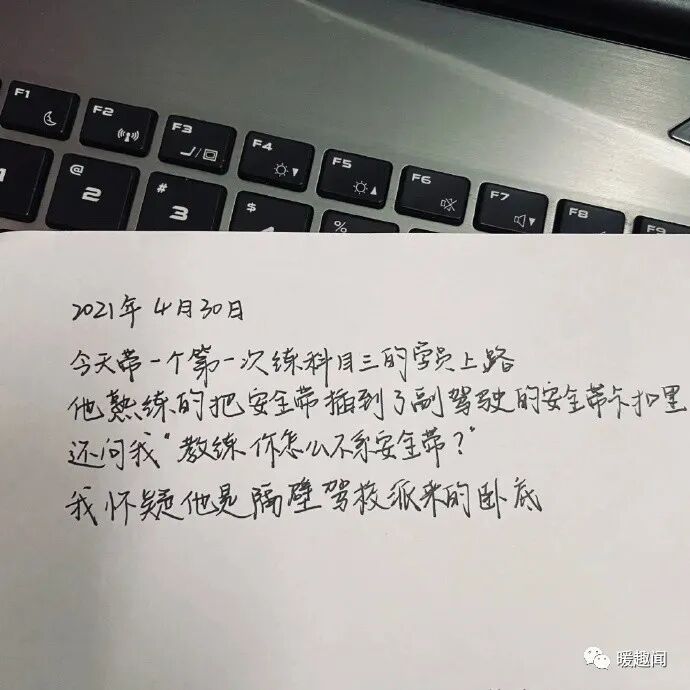 F1
F2
F3
F4
F5
F6
F7
F8
F9
1
@
2
#
3
$
%
2021年4月30日
今天带一个第一次练科目三的学员上路
他熟练的把安全带插到了副驾驶的安全带卡扣里
还问我“教练你怎么不系安全带？”
我怀疑他是隔壁驾校派来的卧底
暖趣闻